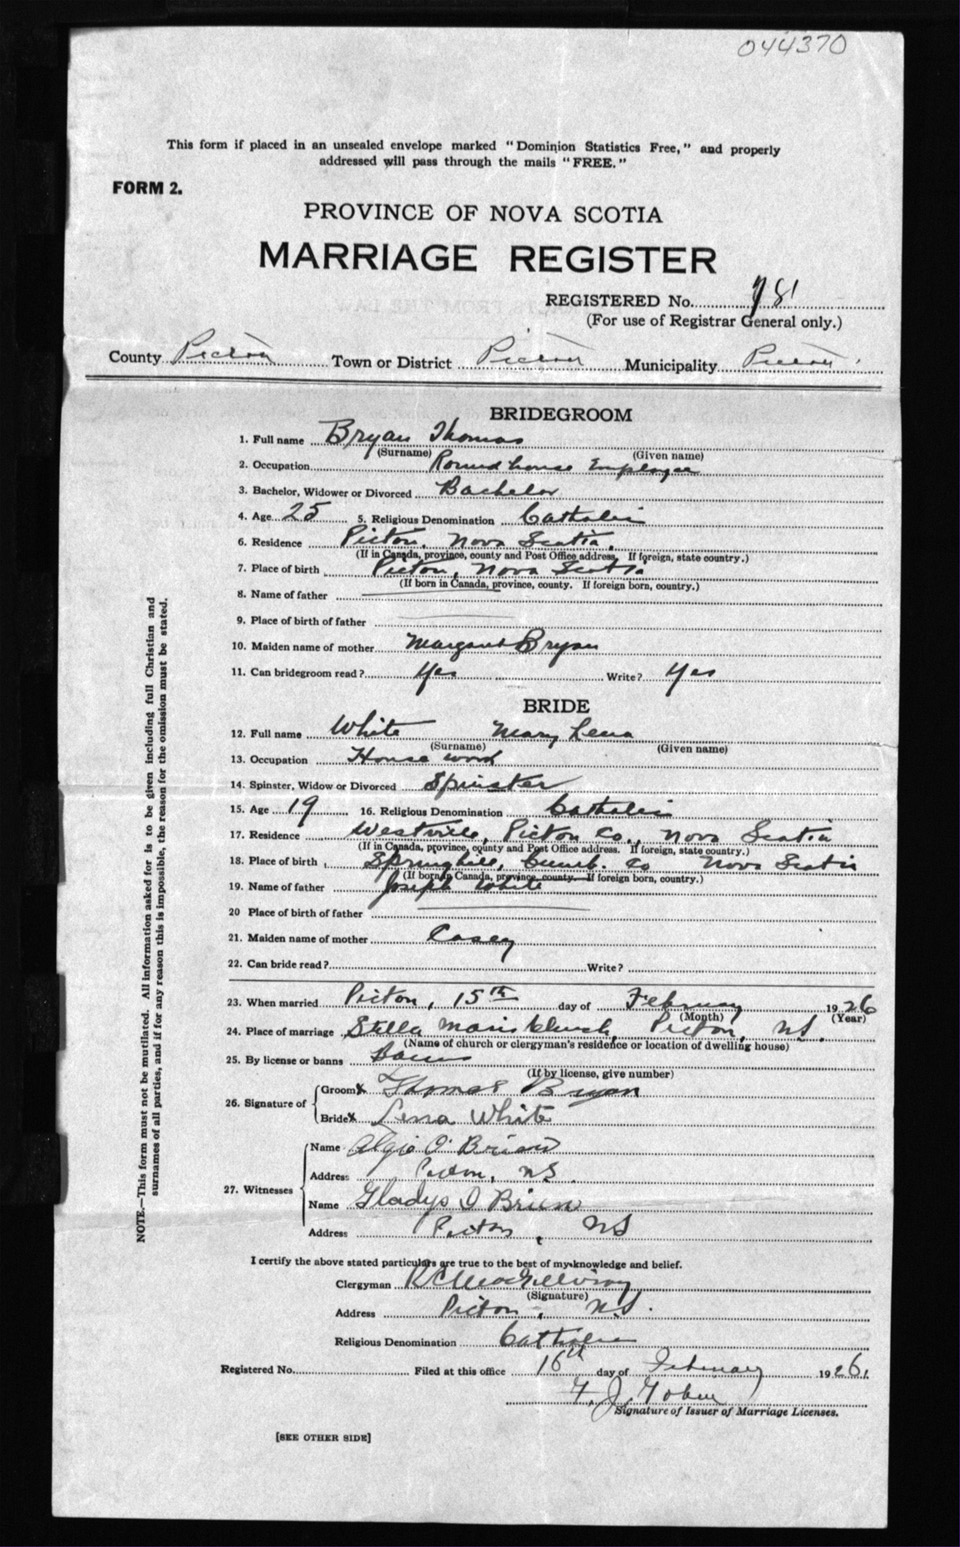 044370
This form if placed in an unsealed envelope marked "Dominion Statistics Free," and properly
addressed will pass through the mails "FREE."
FORM 2.
PROVINCE OF NOVA SCOTIA
MARRIAGE REGISTER
REGISTERED No. 781
(For use of Registrar General only.)
County Pictou Town or District Pictou Municipality Pictou
BRIDEGROOM
1. Full name Bryan Thomas
(Surname) (Given name)
2. Occupation Roundhouse Employee
3. Bachelor, Widower or Divorced Bachelor
4. Age 25 5. Religious Denomination Catholic
6. Residence Pictou, Nova Scotia,
(If in Canada, province, county and Post Office address. If foreign, state country.)
7. Place of birth Pictou, Nova Scotia
(If born in Canada, province, county. If foreign born, country.)
8. Name of father
9. Place of birth of father
10. Maiden name of mother Margaret Bryan
11. Can bridegroom read? Yes Write? Yes
BRIDE
12. Full name White Mary Lena
(Surname) (Given name)
13. Occupation House work
14. Spinster, Widow or Divorced Spinster
15. Age 19 16. Religious Denomination Catholic
17. Residence Westville, Pictou Co., Nova Scotia
(If in Canada, province, county and Post Office address. If foreign, state country.)
18. Place of birth Springhill, Cumb. Co Nova Scotia
(If born in Canada, province, county. If foreign born, country.)
19. Name of father Joseph White
20 Place of birth of father
21. Maiden name of mother Casey
22. Can bride read? Write?
23. When married Pictou, 15th day of February 1926
(Month) (Year)
24. Place of marriage Stella Maris Church, Pictou, N.S.
(Name of church or clergyman's residence or location of dwelling house)
25. By license or banns Banns
(If by license, give number)
26. Signature of
Groom X Thomas Bryan
Bride X Lena White
27. Witnesses
Name O'Brien
Address Pictou, N.S.
Name Gladys O'Brien
Address Pictou, N.S.
I certify the above stated particulars are true to the best of my knowledge and belief.
Clergyman R C MacGillivray
(Signature)
Address Pictou, N.S.
Religious Denomination Catholic
Registered No. Filed at this office 16th day of February 1926.
F. J.
Signature of Issuer of Marriage Licenses.
[SEE OTHER SIDE]
NOTE.—This form must not be mutilated. All information asked for is to be given including full Christian and
surnames of all parties, and if for any reason this is impossible, the reason for the omission must be stated.